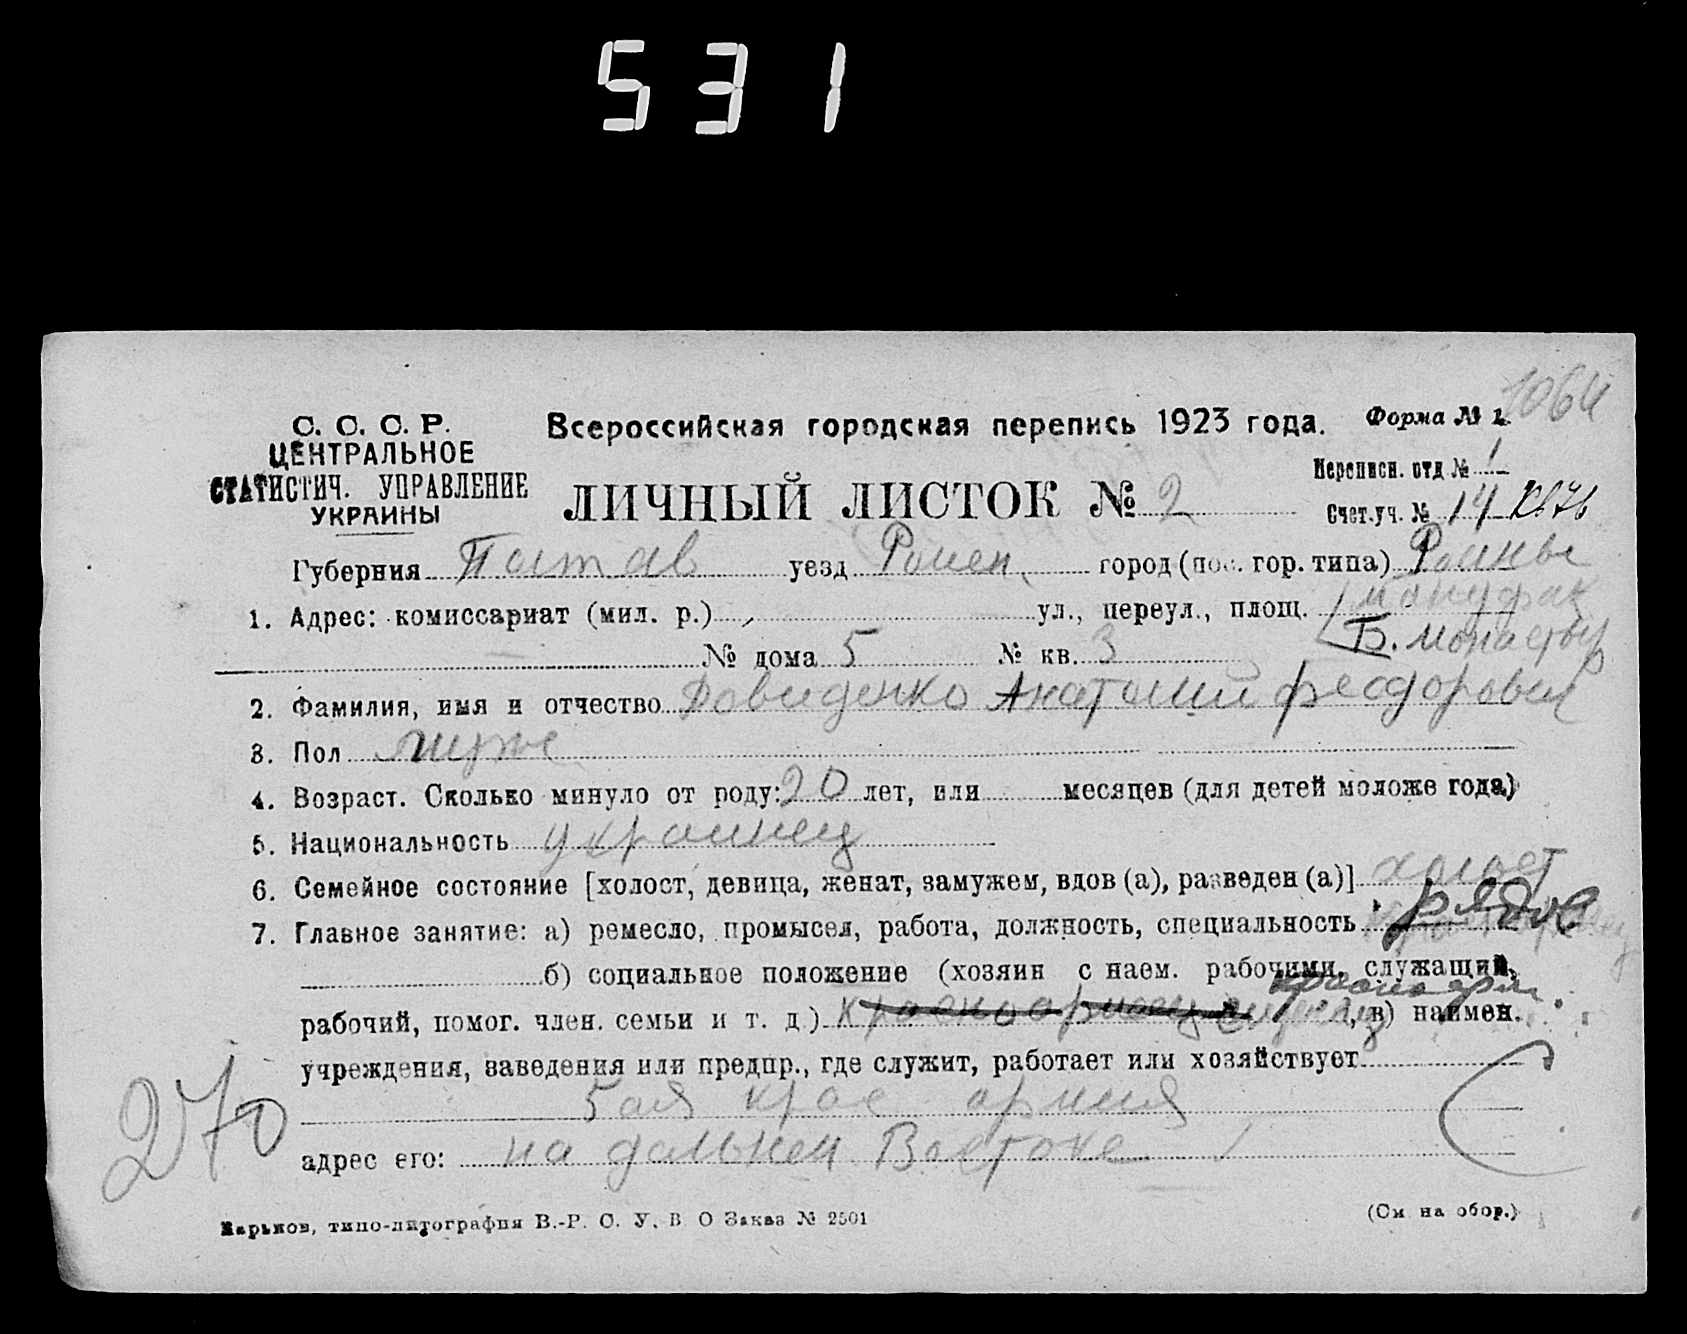 531
1064
С. С. С. Р.
ЦЕНТРАЛЬНОЕ
СТАТИСТИЧ. УПРАВЛЕНИЕ
УКРАИНЫ
Всероссийская городская перепись 1923 года.
Форма № 1.
ЛИЧНЫЙ ЛИСТОК № 2
Переписн. отд № 1
Счет.уч. № 14
Губерния Полтав уезд Ромен. город (пос. гор. типа) Ромны
1. Адрес: комиссариат (мил. р.) ул., переул., площ. Мануфак
Б. Монастыр
№ дома 5 № кв. 3
2. Фамилия, имя и отчество Давиденко Анатолий Феодорович
3. Пол муж
4. Возраст. Сколько минуло от роду: 20 лет, или месяцев (для детей моложе года)
5. Национальность украинец
6. Семейное состояние [холост, девица, женат, замужем, вдов (а), разведен (а)] холост
7. Главное занятие: а) ремесло, промысел, работа, должность, специальность рядов
б) социальное положение (хозяин с наем. рабочими, служащий,
красноарм.
рабочий, помог. член. семьи и т. д.) красноармеец , в) наимен.
учреждения, заведения или предпр., где служит, работает или хозяйствует
5ая крас армия
адрес его: на дальнем Востоке
270
Харьков, типо-литография В.-Р. С. У. В. О Заказ № 2501
(См на обор.)